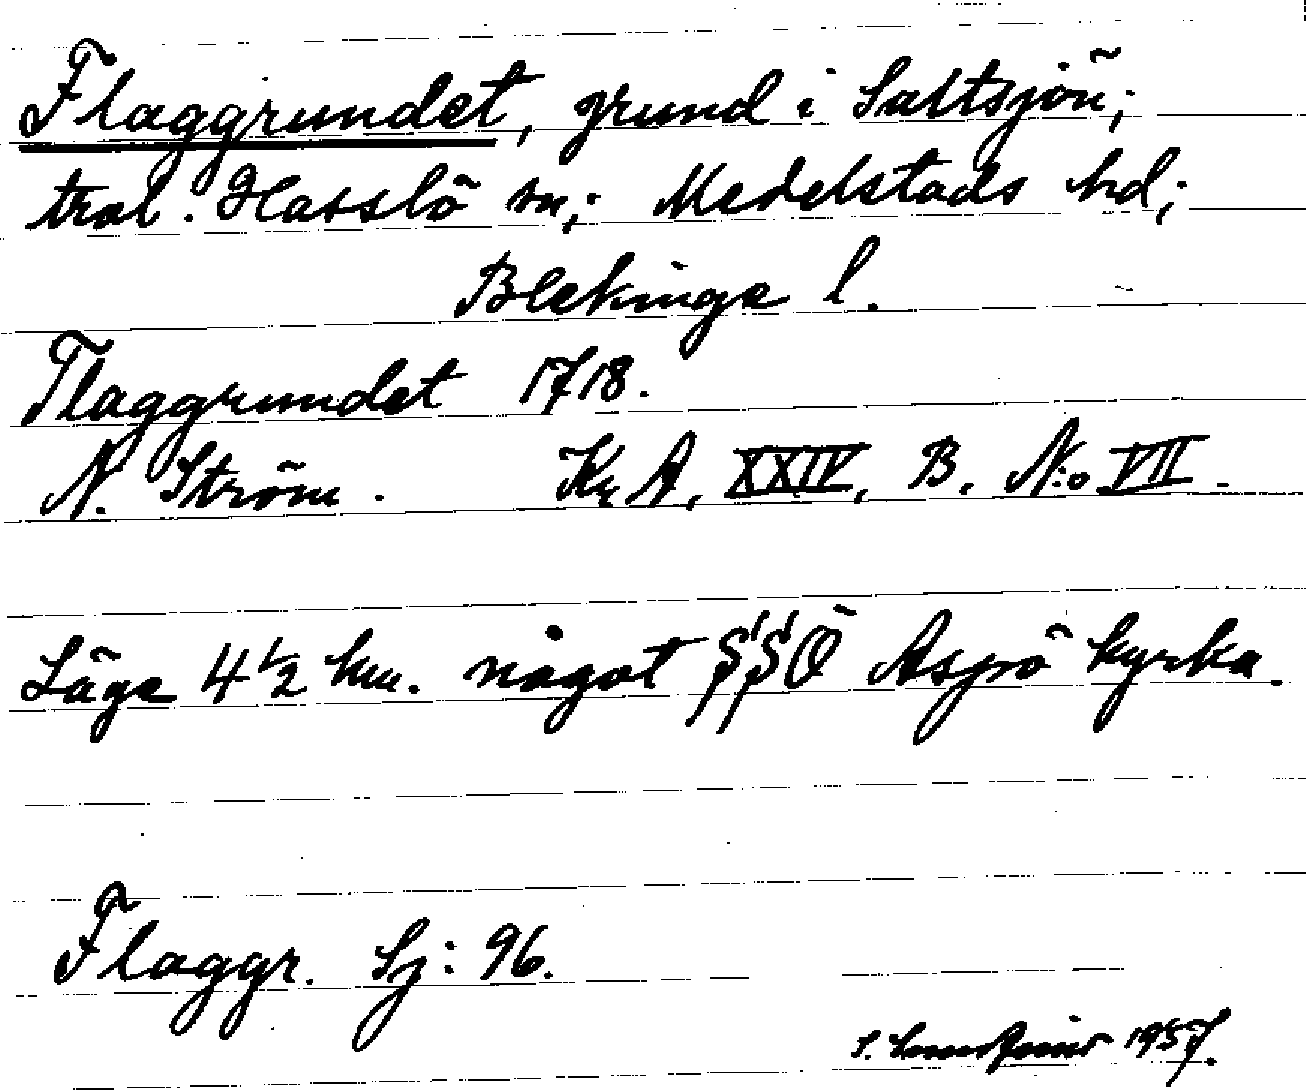 Flaggrundet, grund i Saltsjön;
tral. Hasslö sn; Medelstads hd;
Blekinge l.
Flaggrundet 1718.
N. Ström. Kr A, XXIV, B. N:o VII.
Läge 4 1/2 km. något SSÖ Aspö kyrka.
Flaggr. Sj: 96.
S. 1957.